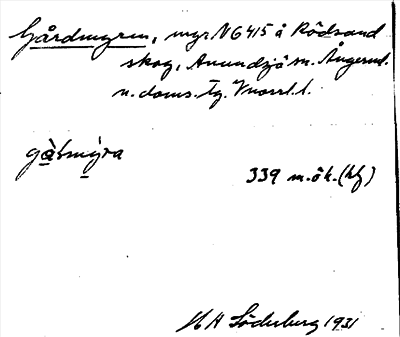 Gårdmyren, myr NG 415 å Rödsand
skog, Anundsjö sn. Ångerml.
n. doms. tg. Vnorrl. l.
gàḷmýra
339 m.ö.h. (kf)
H H Söderberg 1931